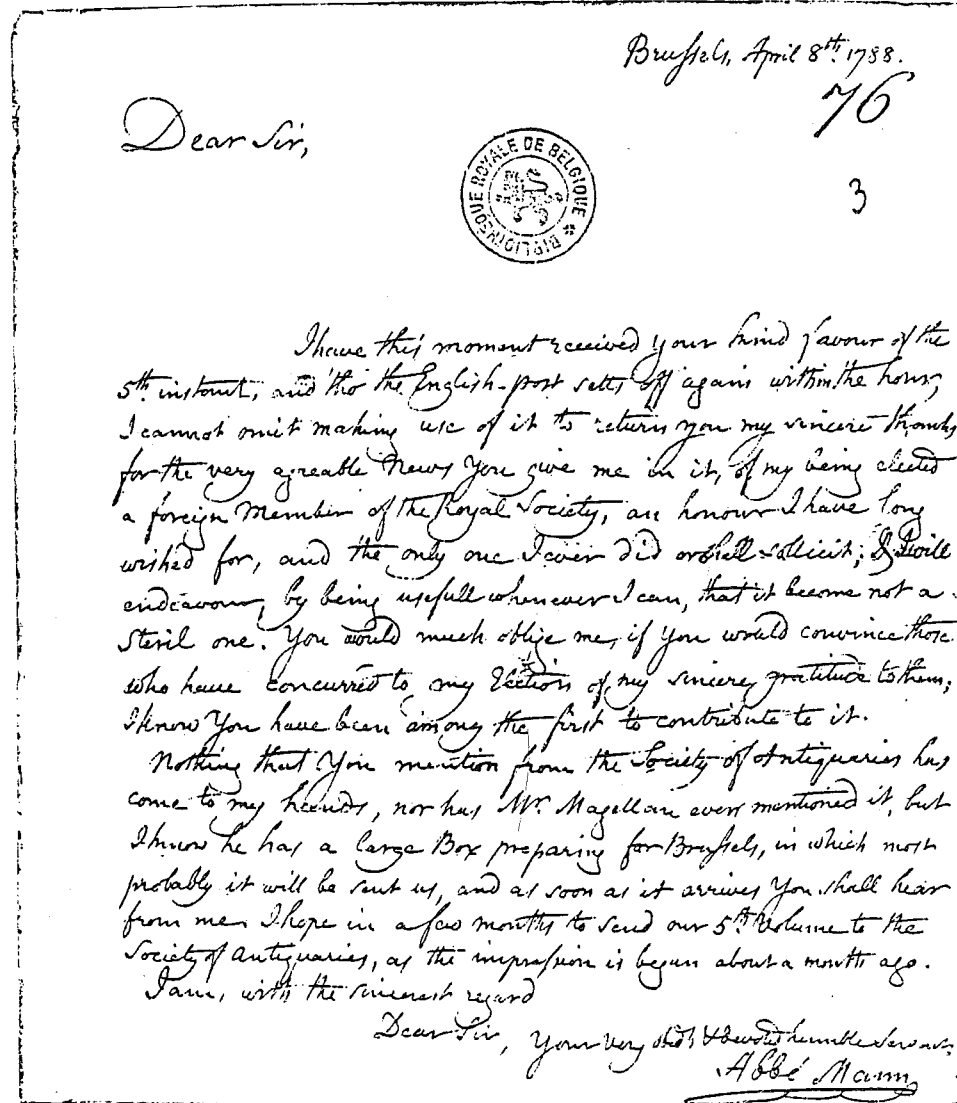 Brussels, April 8th. 1788.
76
Dear Sir,
BIBLIOTHÈQUE ROYALE DE BELGIQUE
3
I have this moment received your kind favour of the
5th. instant, and tho' the English-post setts off again within the hour,
I cannot omit making use of it to return you my sincere thanks
for the very agreable News You give me in it, of my being elected
a foreign Member of the Royal Society, an honour I have long
wished for, and the only one I ever did or shall sollicit; & I will
endeavour, by being usefull whenever I can, that it become not a
steril one. You would much oblige me, if You would convince those
who have concurred to my Election of my sincere gratitude to them;
I know You have been among the first to contribute to it.
Nothing that You mention from the Society of Antiquaries has
come to my hands, nor has Mr. Magellan ever mentioned it, but
I know he has a large Box preparing for Brussels, in which most
probably it will be sent us, and as soon as it arrives You shall hear
from me. I hope in a few months to send our 5th. Volume to the
Society of Antiquaries, as the impression is begun about a month ago.
I am, with the sincerest regard
Dear Sir, Your very obdt. & devoted humble Servant.
Abbé Mann